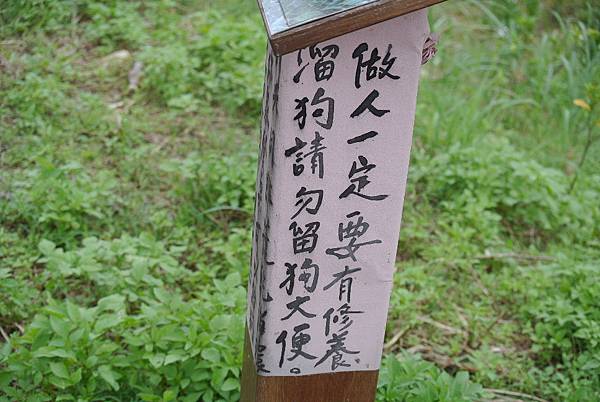 做人一定要有修養。
溜狗請勿留狗大便。